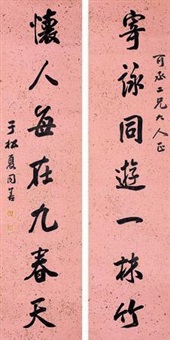 可丞二兄大人正
寄詠同遊一林竹
懷人每在九春天
子松夏同善